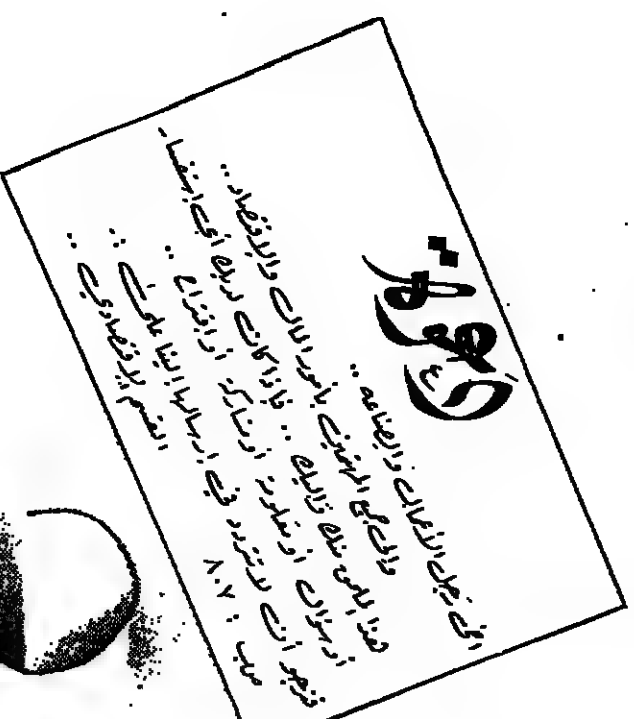 دعوة
الى رجل الأعمال والصناعه ..
والى جميع المهتمين بأمور المال والاقتصاد ..
هذا الملحق منك واليك .. فإذا كانت لديك أي استفسا -
أو سؤال أو معلومة أو مشاركة أو اقتراح ..
فنرجو أن لا تتردد في إرسالها إلينا على
ص.ب : ٨٠٧
القسم الاقتصادي ..